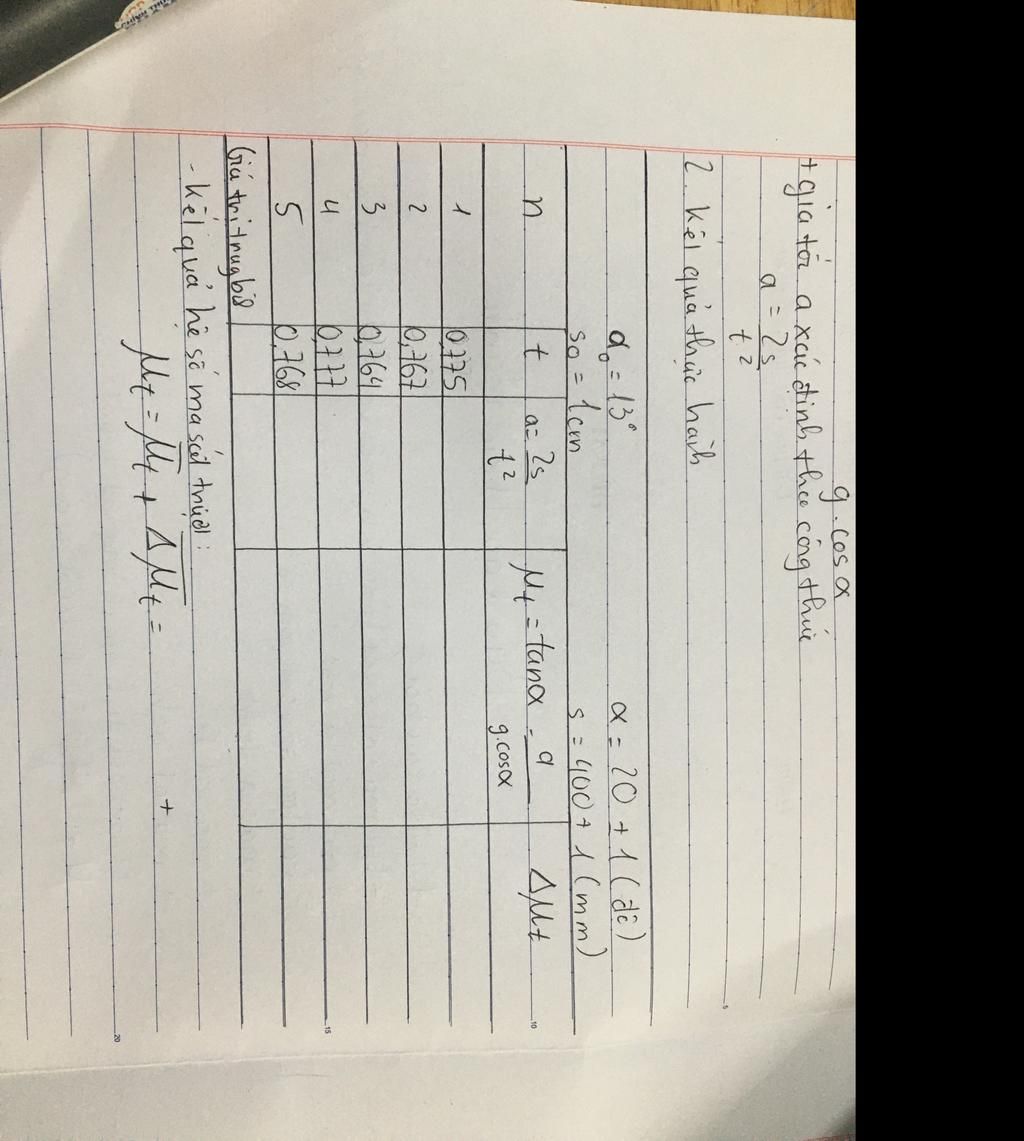 g.cos α
+ gia tốc a xác định theo công thức
a = 2s
t²
2. Kết quả thực hành
α₀ = 13° α = 20 ± 1 (độ)
s₀ = 1cm s = 400 ± 1 (mm)
n t a = 2s/t² μt = tanα - a/g.cosα Δμt
1 0,775
2 0,767
3 0,764
4 0,777
5 0,768
Giá trị
- Kết quả hệ số ma sát trượt:
μt = μ̄t + Δ̄μ̄t̄ = +
5
10
15
20